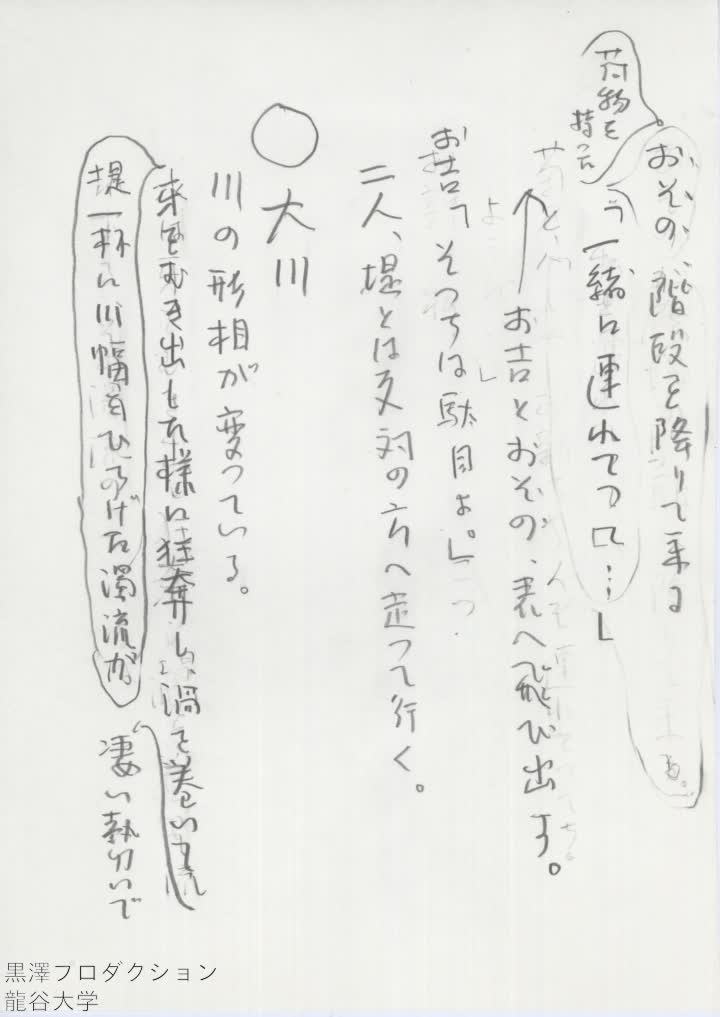 荷物を
持った
おその、階段を降りて来る
「一緒に連れてつて…」
お吉とおその、表へ飛び出す。
お吉「そつちは駄目よ。」
二人、堤とは反対の方へ走つて行く。
○大川
川の形相が変つている。
牙をむき出した様に狂奔し、渦を巻いて
堤一杯に川幅をひろげた濁流が。
凄い勢いで
黒澤プロダクション
龍谷大学